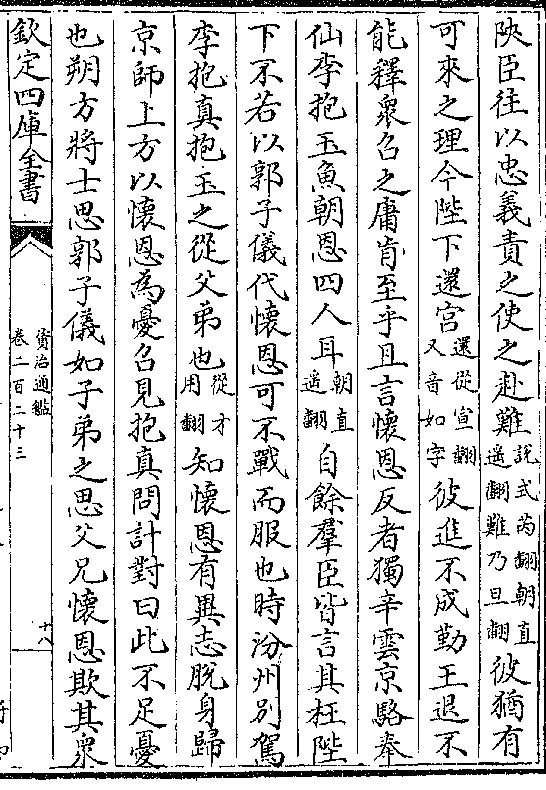 陜臣往以忠義責之使之赴難說式芮翻朝直遥翻難乃旦翻彼猶有
可來之理今陛下還宫還從宣翻又音如字彼進不成勤王退不
能釋衆召之庸肯至乎且言懷恩反者獨辛雲京駱奉
仙李抱玉魚朝恩四人耳朝直遥翻自餘羣臣皆言其枉陛
下不若以郭子儀代懷恩可不戰而服也時汾州别駕
李抱真抱玉之從父弟也從才用翻知懷恩有異志脱身歸
京師上方以懷恩為憂召見抱真問計對曰此不足憂
也朔方將士思郭子儀如子弟之思父兄懷恩欺其衆
欽定四庫全書
資治通鑑
卷二百二十三
十八